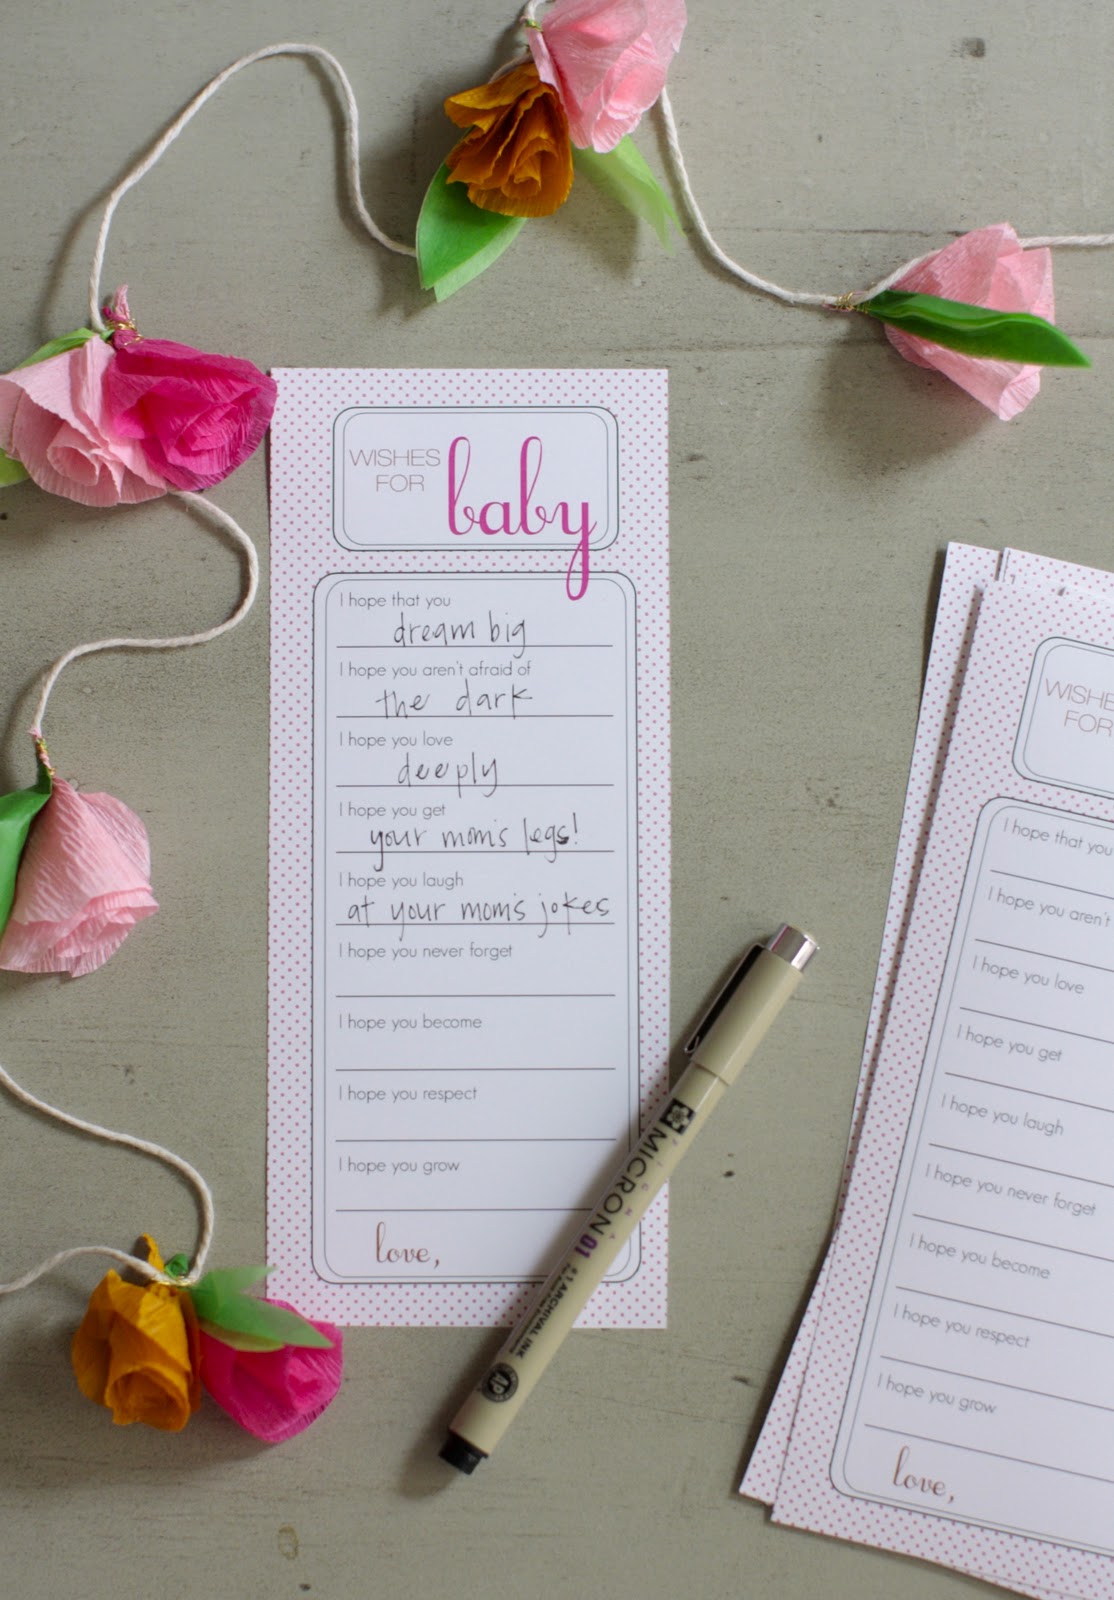 WISHES
FOR baby
I hope that you
dream big
I hope you aren't afraid of
the dark
I hope you love
deeply
I hope you get
your mom's legs!
I hope you laugh
at your mom's jokes
I hope you never forget
I hope you become
I hope you respect
I hope you grow
love,
PIGMA
MICRON 01
ARCHIVAL INK
AP
WISHE
FOR
I hope that you
I hope you aren't
I hope you love
I hope you get
I hope you laugh
I hope you never forget
I hope you become
I hope you respect
I hope you grow
love,